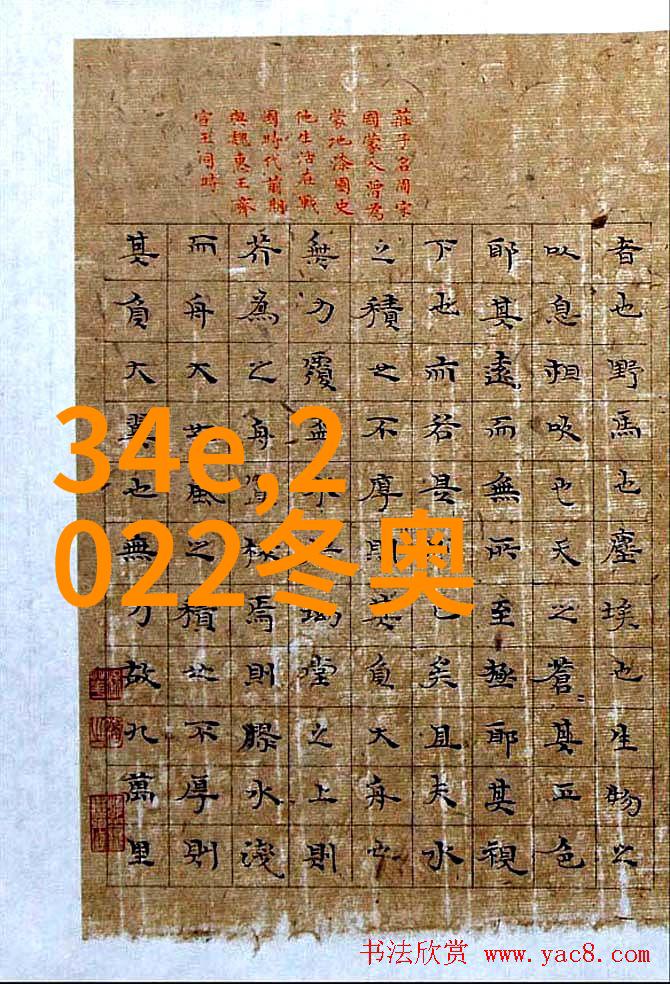 莊子名周宋
國蒙人曾為
蒙地漆園史
他生活在戰
國時代前期
與魏惠王齊
宣王同時
者也野馬也塵埃也生物之
以息相吹也天之蒼〻其正色
耶其遠而無所至極耶其視
下也而若是則已矣且夫水
之積也不厚則其負大舟也
無力覆盃水於坳堂之上則
芥為之舟置杯焉則膠水淺
而舟大其風之積也不厚則
其負大翼也無力故九萬里
34e,2
022冬奥
书法欣赏 www.yac8.com